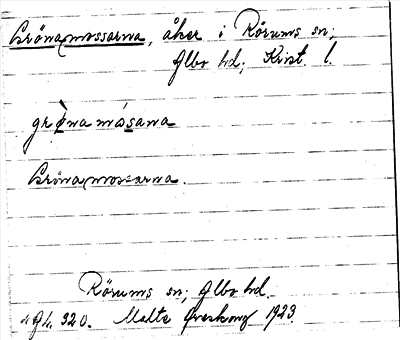 Grönamossarna, åker i Rörums sn;
Albo hd; Krist. l.
grø̀na mósana
Grönamossarna.
Rörums sn; Albo hd.
320. Malte 1923